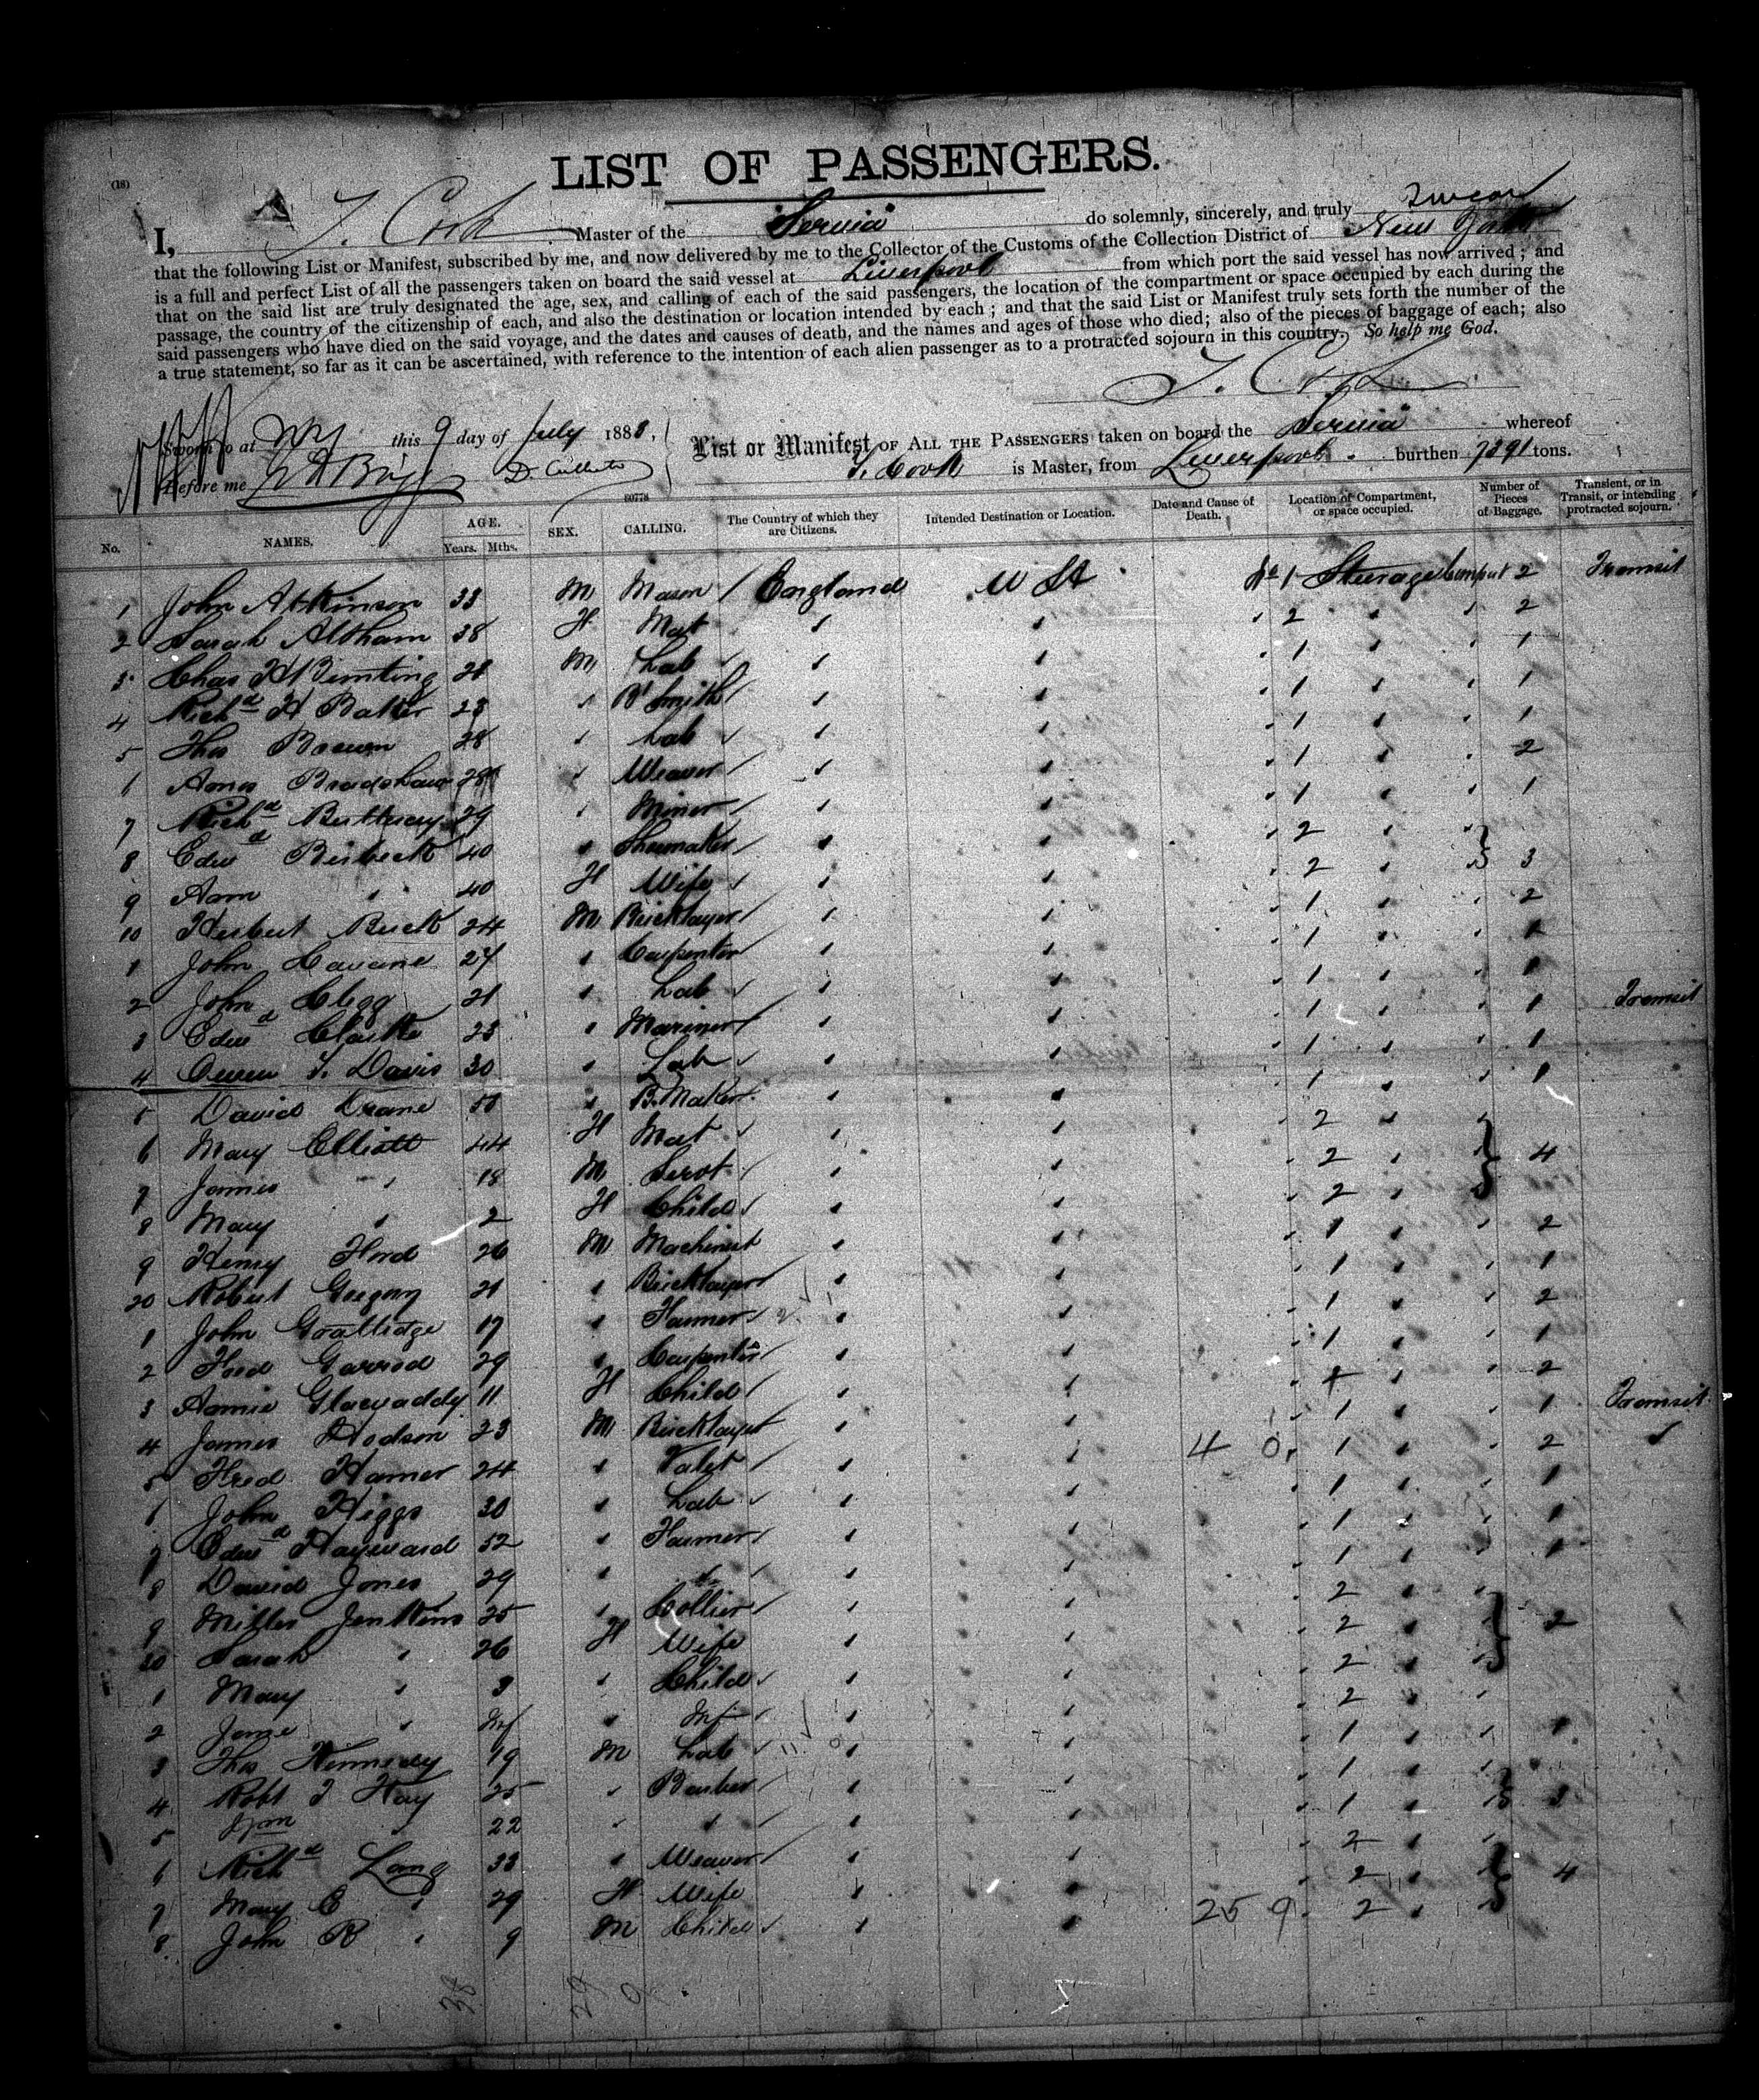 (18)
LIST OF PASSENGERS.
I, T. Cook Master of the "Servia" do solemnly, sincerely, and truly Swear
that the following List or Manifest, subscribed by me, and now delivered by me to the Collector of the Customs of the Collection District of New York
is a full and perfect List of all the passengers taken on board the said vessel at Liverpool from which port the said vessel has now arrived; and
that on the said list are truly designated the age, sex, and calling of each of the said passengers, the location of the compartment or space occupied by each during the
passage, the country of the citizenship of each, and also the destination or location intended by each; and that the said List or Manifest truly sets forth the number of the
said passengers who have died on the said voyage, and the dates and causes of death, and the names and ages of those who died; also of the pieces of baggage of each; also
a true statement, so far as it can be ascertained, with reference to the intention of each alien passenger as to a protracted sojourn in this country. So help me God.
T. Cook
Sworn to at NY this 9 day of July 1888,
Before me
List or Manifest OF ALL THE PASSENGERS taken on board the "Servia" whereof
T. Cook is Master, from Liverpool burthen 7391 tons.
60778
No. NAMES. AGE. Years. Mths. SEX. CALLING. The Country of which they are Citizens. Intended Destination or Location. Date and Cause of Death. Location of Compartment, or space occupied. Number of Pieces of Baggage. Transient, or in Transit, or intending protracted sojourn.
1 John Atkinson 33 M Mason England U St No 1 Steerage 2 Transit
2 Sarah Altham 38 F Mat 2 2
3 Chas H Bunting 21 M Lab 1 1
4 Richd H Baker 23 B'Smith 1 1
5 Thos Brown 28 Lab 1 1
6 Amos Bradshaw 28 Weaver 1 2
7 Richd Buttrey 29 Miner 1 1
8 Edwd Birbeck 40 Shoemaker 2
9 Ann " 40 F Wife 2 3
10 Herbert Brick 24 M Bricklayer 1 2
1 John 27 Carpenter 1
2 John Clegg 21 Lab 1 1
3 Edwd Clarke 23 Mariner 1 1 Transit
4 Owen T. Davis 30 Lab 1 1
5 David Deane B. Maker 1 1
6 Mary Elliott 44 F Mat 2
7 James " 18 M Servt 2 4
8 Mary " 2 F Child 2
9 Henry Ford 26 M Machinist 1 2
20 Robert Gregory 21 Bricklayer 1 1
1 John 17 Farmer 1 2
2 Fred Garrod 29 Carpenter 1 1
3 Annie 11 F Child 2
4 James Hodson 23 M Bricklayer 1 1 Transit
5 Fred Hamer 24 Valet 4 0 1 2
6 John Higgs 30 Lab 1 1
7 Edwd Hayward 52 Farmer 1 1
8 David Jones 29 " 1 1
9 Miller Jenkins 25 Collier 2
30 Sarah " 26 F Wife 2 2
1 Mary " 3 Child 2
2 Jane " Inf Inf 2
3 Thos Kennedy 19 M Lab 1 1
4 Robt J Kay 25 Barber 1
5 22 " 1 3
6 Richd Lang 33 Weaver 2
7 Mary E " 29 F Wife 2 4
8 John R " 9 M Child 25 9 2
38 29 9